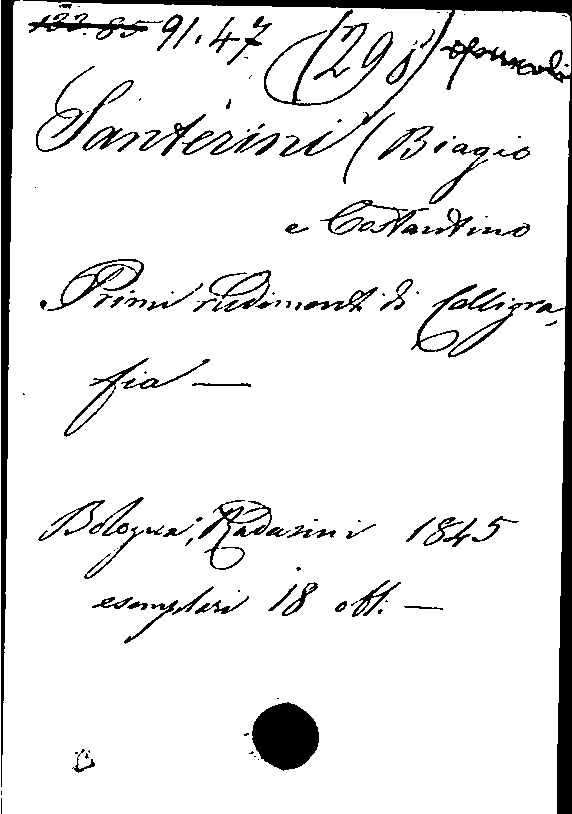 122.85 91.47 (298) opuscoli
Santerini (Biagio
e Costantino
Primi rudimenti di Calligra,
fia —
Bologna, 1845
esemplari 18 obl. —